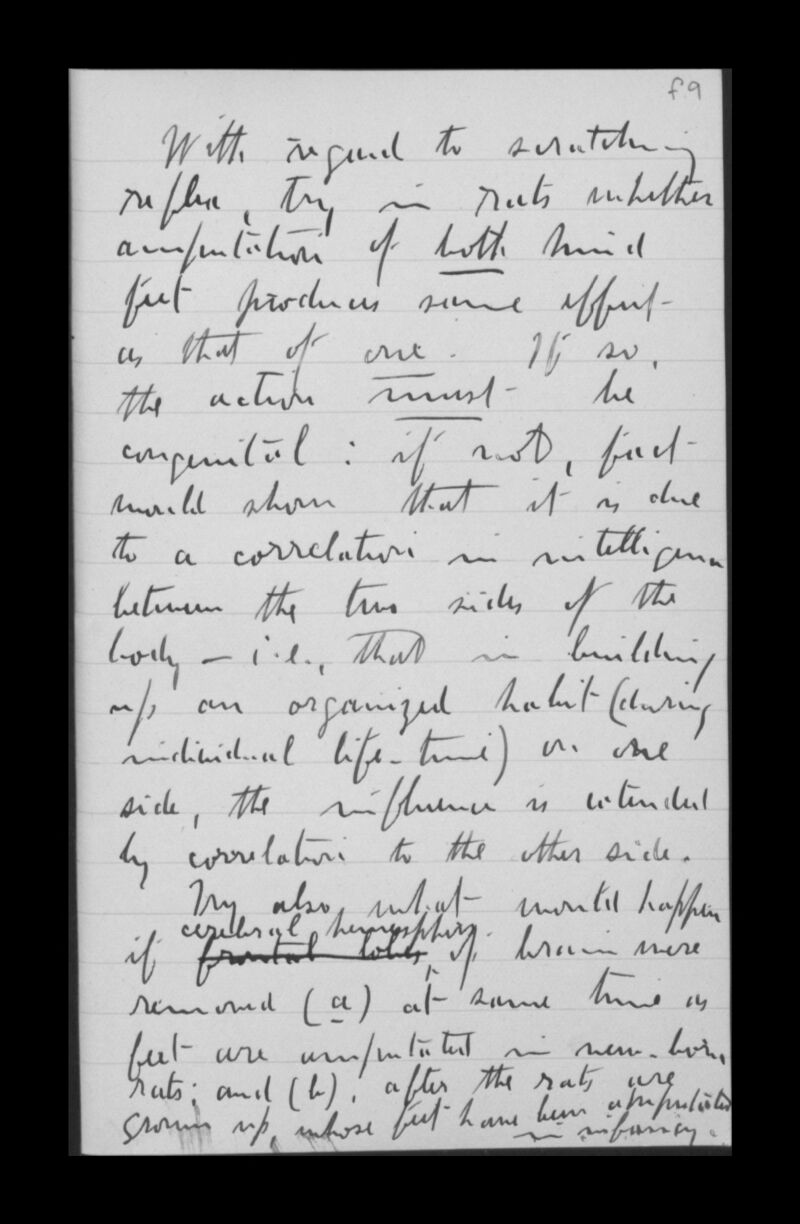 f.9
With regard to scratching
reflex, try in rats whether
amputation of both hind
feet produces same effect
as that of one. If so,
the action must be
congenital : if not, fact
would show that it is due
to a correlation in intelligence
between the two sides of the
body – i.e., that in building
up an organized habit (during
individual life-time) on one
side, the influence is extended
by correlation to the other side.
Try also what would happen
cerebral hemispheres
if frontal lobes of brain were
removed (a) at same time as
feet are amputated in new-born
rats; and (b), after the rats are
grown up, whose feet have been amputated
in infancy.